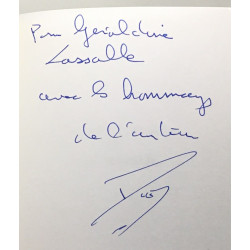 Pour Géraldine
Lassalle
avec les hommages
de l'auteur